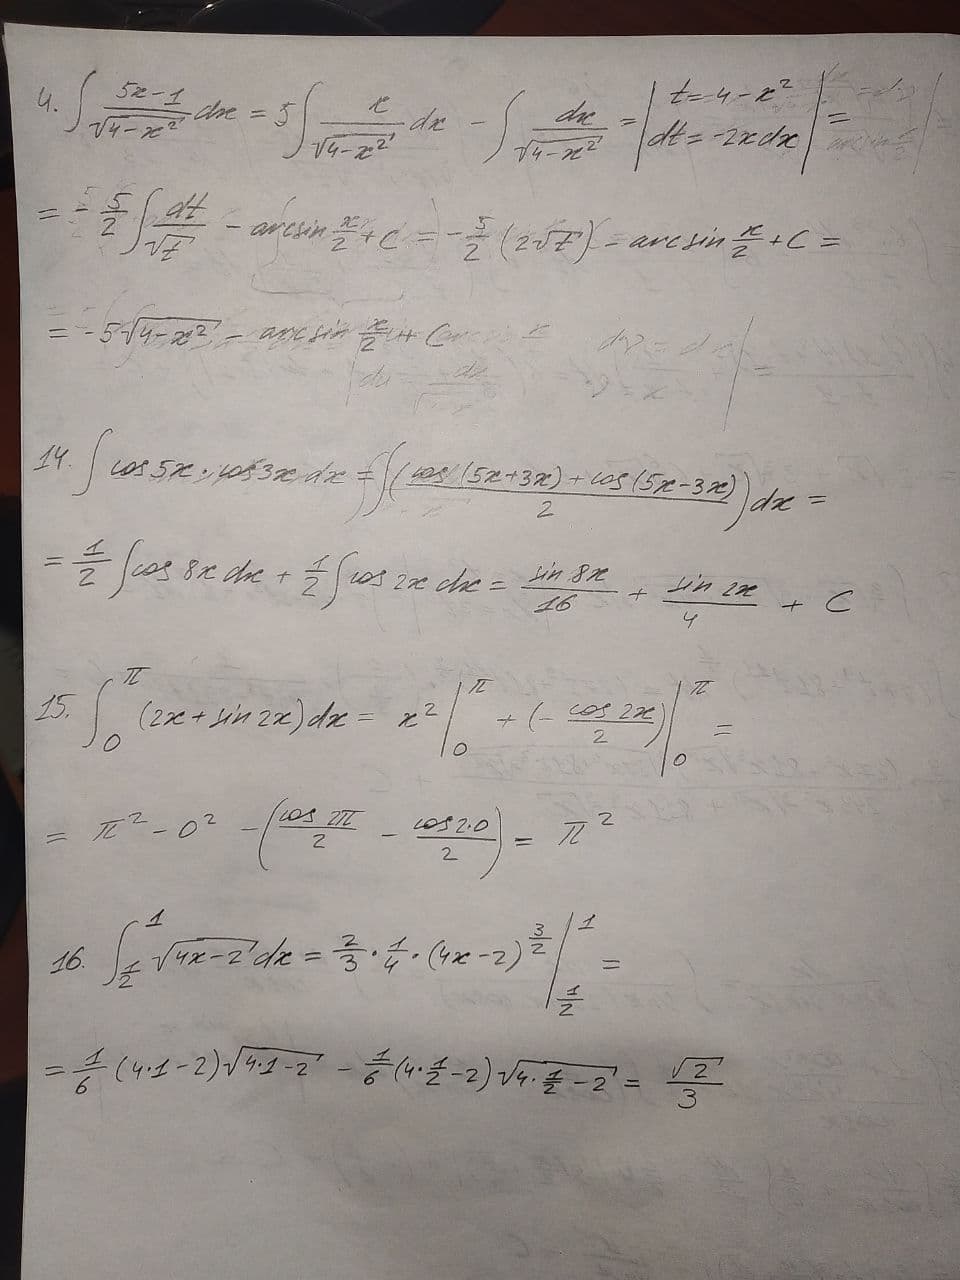 4. ∫ (5x-1)/√(4-x²) dx = 5∫ x/√(4-x²) dx - ∫ dx/√(4-x²) = | t=4-x² dt=-2xdx | =
= -5/2 ∫ dt/√t - arcsin x/2 + C = -5/2 (2√t) - arcsin x/2 + C =
= -5√(4-x²) - arcsin x/2 + C
14. ∫ cos 5x · cos 3x dx = ∫ ((cos (5x+3x) + cos (5x-3x))/2) dx =
= 1/2 ∫ cos 8x dx + 1/2 ∫ cos 2x dx = sin 8x/16 + sin 2x/4 + C
15. ∫₀^π (2x + sin 2x) dx = x² |₀^π + (- cos 2x/2) |₀^π =
= π² - 0² - (cos 2π/2 - cos 2·0/2) = π²
16. ∫_{1/2}^1 √(4x-2) dx = 2/3 · 1/4 · (4x-2)^{3/2} |_{1/2}^1 =
= 1/6 (4·1-2)√(4·1-2) - 1/6 (4·1/2-2)√(4·1/2-2) = √2/3